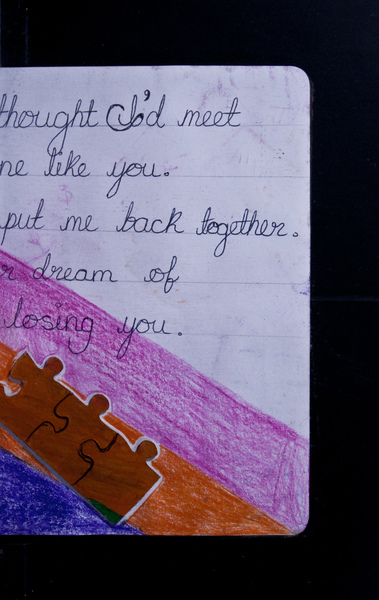 thought I'd meet
ne like you.
put me back together.
r dream of
losing you.